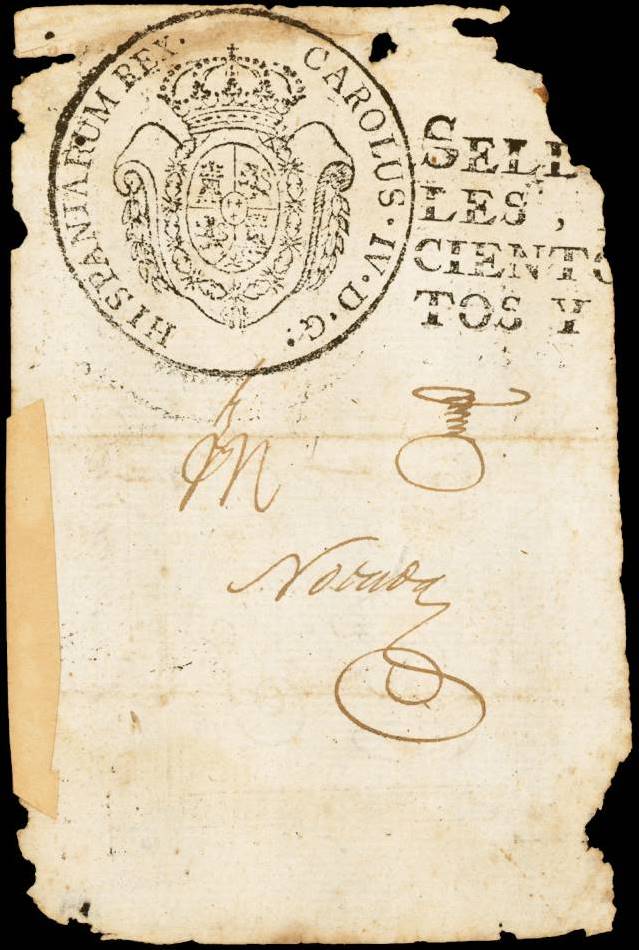 CAROLUS·IV·D·G·
HISPANIARUM REX·
SELL
LES,
CIENTO
TOS Y